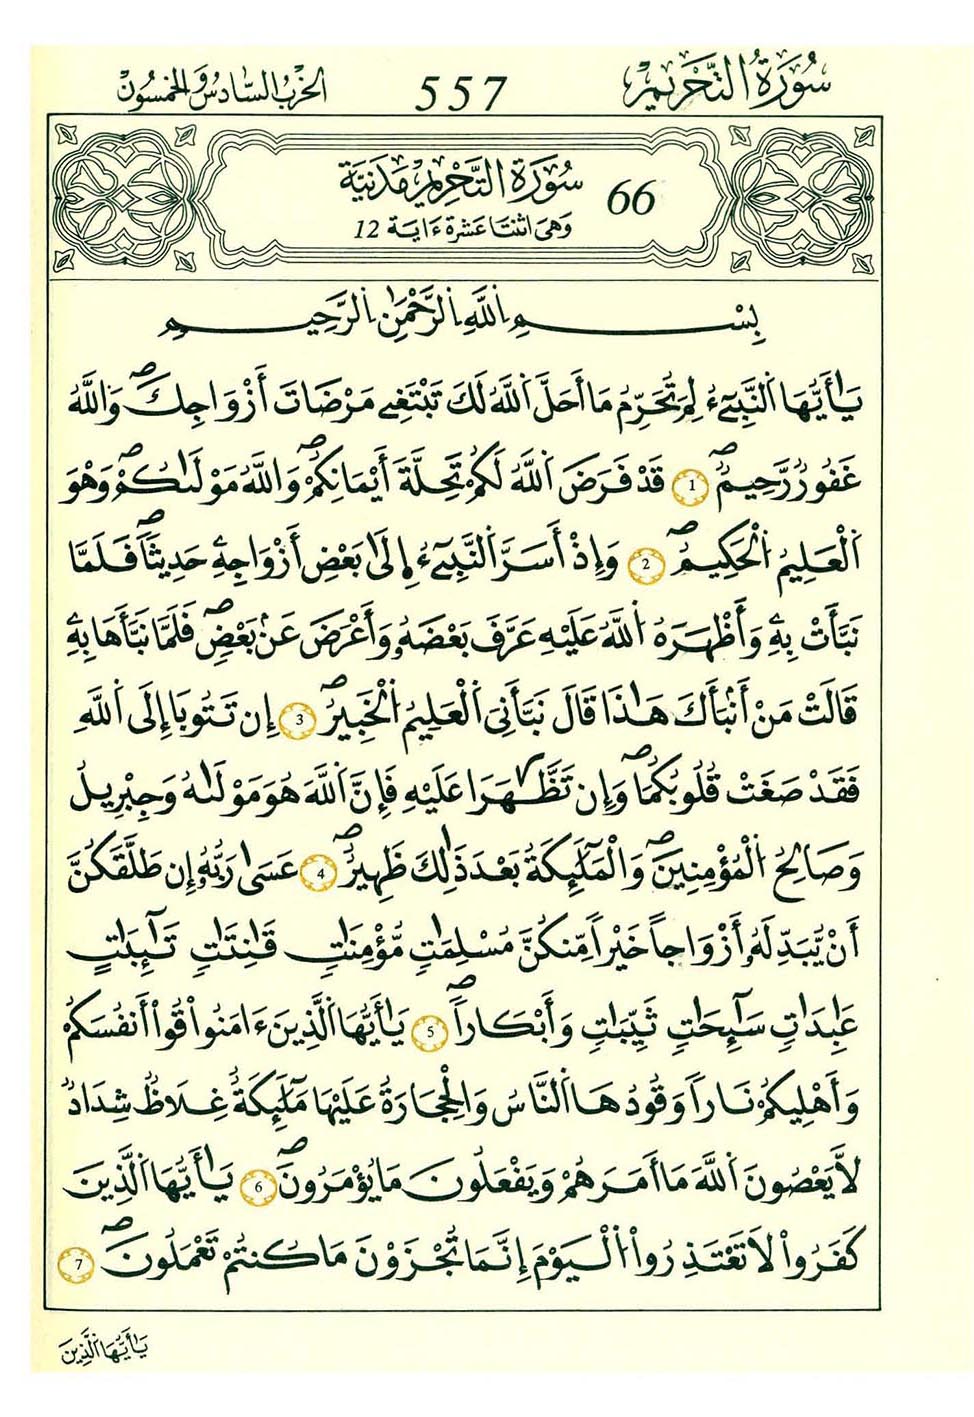 سُورَةُ التَّحْرِيمِ 557 الحزب السادس والخمسون
66 سُورَةُ التَّحْرِيمِ مَدَنِيَّة
وَهِيَ اثْنَتَا عَشْرَةَ ءَايَة 12
بِسْمِ اِ۬للَّهِ اِ۬لرَّحْمَٰنِ اِ۬لرَّحِيمِ
يَٰأَيُّهَا اَ۬لنَّبِيٓءُ لِمَ تُحَرِّمُ مَا أَحَلَّ اَ۬للَّهُ لَكَ تَبْتَغِے مَرْضَاتَ أَزْوَاجِكَۖ وَاللَّهُ
غَفُورٌ رَّحِيمٌۖ 1 قَدْ فَرَضَ اَ۬للَّهُ لَكُمْ تَحِلَّةَ أَيْمَانِكُمْۖ وَاللَّهُ مَوْلَىٰكُمْۖ وَهْوَ
اَ۬لْعَلِيمُ اُ۬لْحَكِيمُۖ 2 وَإِذْ أَسَرَّ اَ۬لنَّبِيٓءُ اِ۪لَىٰ بَعْضِ أَزْوَاجِهِۦ حَدِيثاًۖ فَلَمَّا
نَبَّأَتْ بِهِۦ وَأَظْهَرَهُ اُ۬للَّهُ عَلَيْهِ عَرَّفَ بَعْضَهُۥ وَأَعْرَضَ عَنۢ بَعْضٍۖ فَلَمَّا نَبَّأَهَا بِهِۦ
قَالَتْ مَنْ أَنۢبَأَكَ هَٰذَا قَالَ نَبَّأَنِيَ اَ۬لْعَلِيمُ اُ۬لْخَبِيرُۖ 3 إِن تَتُوبَا إِلَى اَ۬للَّهِ
فَقَدْ صَغَتْ قُلُوبُكُمَاۖ وَإِن تَظَّٰهَرَا عَلَيْهِ فَإِنَّ اَ۬للَّهَ هُوَ مَوْلَىٰهُ وَجِبْرِيلُ
وَصَالِحُ اُ۬لْمُؤْمِنِينَۖ وَالْمَلَٰٓئِكَةُ بَعْدَ ذَٰلِكَ ظَهِيرٌۖ 4 عَسَىٰ رَبُّهُۥ إِن طَلَّقَكُنَّ
أَنْ يُّبَدِّلَهُۥ أَزْوَاجاً خَيْراً مِّنكُنَّ مُسْلِمَٰتٍ مُّؤْمِنَٰتٍ قَٰنِتَٰتٍ تَٰٓئِبَٰتٍ
عَٰبِدَٰتٍ سَٰٓئِحَٰتٍ ثَيِّبَٰتٍ وَأَبْكَاراًۖ 5 يَٰأَيُّهَا اَ۬لَّذِينَ ءَامَنُواْ قُواْ أَنفُسَكُمْ
وَأَهْلِيكُمْ نَاراً وَقُودُهَا اَ۬لنَّاسُ وَالْحِجَارَةُ عَلَيْهَا مَلَٰٓئِكَةٌ غِلَاظٌ شِدَادٌ
لَّا يَعْصُونَ اَ۬للَّهَ مَا أَمَرَهُمْ وَيَفْعَلُونَ مَا يُؤْمَرُونَۖ 6 يَٰأَيُّهَا اَ۬لَّذِينَ
كَفَرُواْ لَا تَعْتَذِرُواْ اُ۬لْيَوْمَ إِنَّمَا تُجْزَوْنَ مَا كُنتُمْ تَعْمَلُونَۖ 7
يَٰأَيُّهَا اَ۬لَّذِينَ